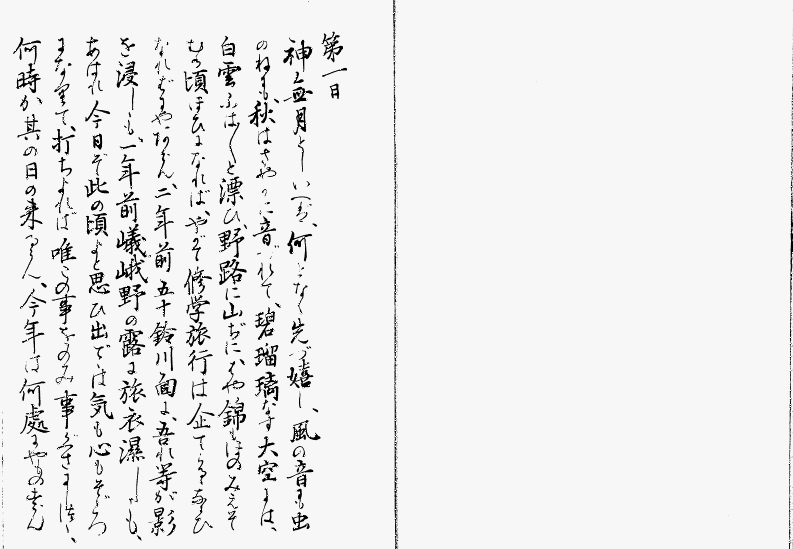 第一日
神無月としいへば、何となく先づ嬉し、風の音も虫
のねも、秋はさやかに音づれて、碧瑠璃なす大空には、
白雲ふは〱と漂ひ、野路に山ぢに、はや錦もほのみえそ
むる頃ほひになれば、やがて修学旅行は企てらるゝならひ
なればにやあらん、二年前五十鈴川の面に、吾れ等が影
を浸しゝも、一年前嵯峨野の露に旅衣濡しゝも、
あはれ今日ぞ此の頃よと思ひ出でゝは気も心もそゞろ
になりて、打ちよれば唯この事をのみ事ぐさにしつゝ、
何時か其の日の来らん、今年は何處にやものすらん